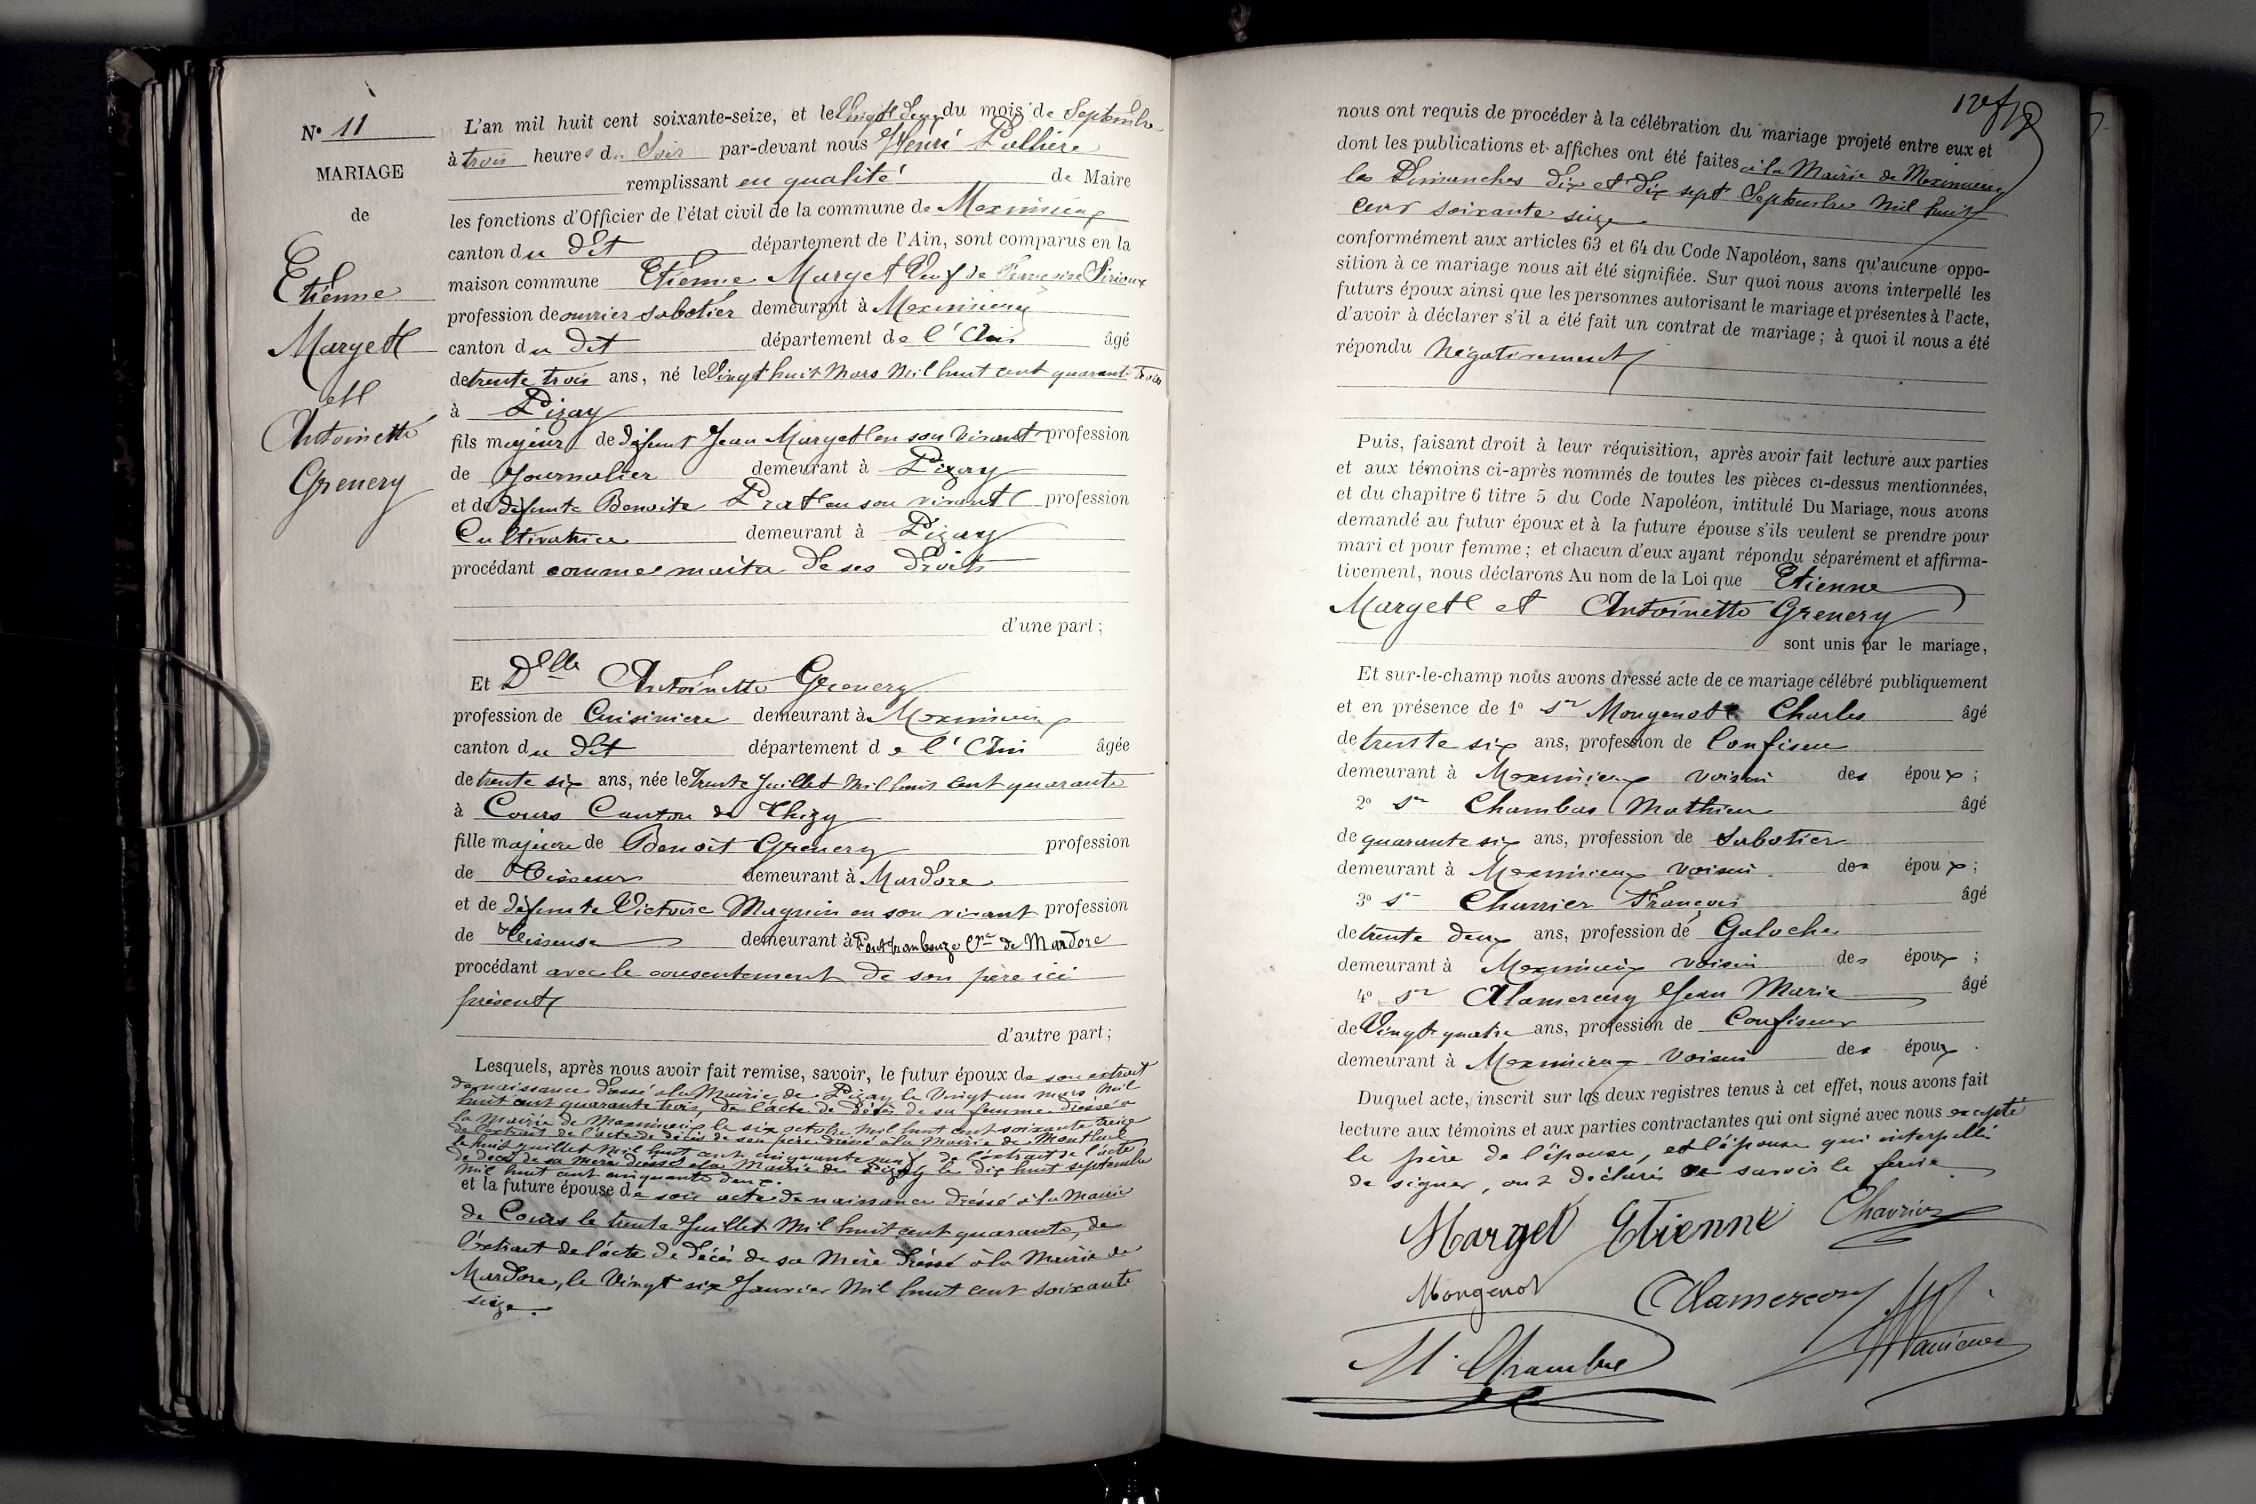 N° 11
MARIAGE
de
Etienne
Margett
ett
Antoinette
Grenery
L'an mil huit cent soixante-seize, et le Vingt deux du mois de Septembre
à trois heures du Soir par-devant nous Henri
remplissant en qualité de Maire
les fonctions d'Officier de l'état civil de la commune de Meximieux
canton du dit département de l'Ain, sont comparus en la
maison commune Etienne Marget Veuf de
profession de ouvrier sabotier demeurant à Meximieux
canton du dit département de l'Ain âgé
de trente trois ans, né le Vingt huit Mars Mil huit cent quarante trois
à Pizay
fils majeur de défunt Jean Marget en son vivant profession
de Journalier demeurant à Pizay
et de défunte Benoite Prat en son vivant profession
Cultivatrice demeurant à Pizay
procédant comme maitre de ses droits
d'une part;
Et Dlle Antoinette Grenery
profession de Cuisiniere demeurant à Meximieux
canton du dit département de l'Ain âgée
de trente six ans, née le Trente Juillet Mil huit cent quarante
à Cours Canton de Thizy
fille majeure de Benoit Grenery profession
de Tisseur demeurant à Mardore
et de défunte Victoire Magnin en son vivant profession
de Tisseuse demeurant à Pont trambouze Cne de Mardore
procédant avec le consentement de son père ici
présent
d'autre part;
Lesquels, après nous avoir fait remise, savoir, le futur époux de son extrait
de naissance dressé à la Mairie de Pizay le Vingt un mars Mil
huit cent quarante trois, de l'acte de décès de sa femme dressé à
la Mairie de Meximieux le six octobre Mil huit cent soixante treize
de l'extrait de l'acte de décès de son père dressé à la Mairie de Montluel
le huit juillet Mil huit cent cinquante neuf de l'extrait de l'acte
de décès de sa mère dressé à la Mairie de Pizay le dix huit septembre
Mil huit cent cinquante deux.
et la future épouse de son acte de naissance dressé à la Mairie
de Cours le trente Juillet Mil huit cent quarante, de
l'extrait de l'acte de décès de sa Mère dressé à la Mairie de
Mardore, le Vingt six Janvier Mil huit cent soixante
seize.
nous ont requis de procéder à la célébration du mariage projeté entre eux et
dont les publications et affiches ont été faites à la Mairie de Meximieux
les Dimanches dix et dix sept Septembre Mil huit
cent soixante seize
conformément aux articles 63 et 64 du Code Napoléon, sans qu'aucune oppo-
sition à ce mariage nous ait été signifiée. Sur quoi nous avons interpellé les
futurs époux ainsi que les personnes autorisant le mariage et présentes à l'acte,
d'avoir à déclarer s'il a été fait un contrat de mariage; à quoi il nous a été
répondu Négativement
Puis, faisant droit à leur réquisition, après avoir fait lecture aux parties
et aux témoins ci-après nommés de toutes les pièces ci-dessus mentionnées,
et du chapitre 6 titre 5 du Code Napoléon, intitulé Du Mariage, nous avons
demandé au futur époux et à la future épouse s'ils veulent se prendre pour
mari et pour femme; et chacun d'eux ayant répondu séparément et affirma-
tivement, nous déclarons Au nom de la Loi que Etienne
Margett et Antoinette Grenery
sont unis par le mariage,
Et sur-le-champ nous avons dressé acte de ce mariage célébré publiquement
et en présence de 1° Sr Mougenot Charles âgé
de trente six ans, profession de Confiseur
demeurant à Meximieux voisin des époux;
2° Sr Chambas Mathieu âgé
de quarante six ans, profession de Sabotier
demeurant à Meximieux voisin des époux;
3° Sr Chavrier François âgé
de trente deux ans, profession de Galocher
demeurant à Meximieux voisin des époux;
4° Sr Alamercery Jean Marie âgé
de Vingt quatre ans, profession de Confiseur
demeurant à Meximieux Voisin des époux.
Duquel acte, inscrit sur les deux registres tenus à cet effet, nous avons fait
lecture aux témoins et aux parties contractantes qui ont signé avec nous excepté
le père de l'épouse, et l'épouse qui interpellés
de signer, ont déclaré ne savoir le faire
Marget Etienne Chavrier
Mougenot Alamercery